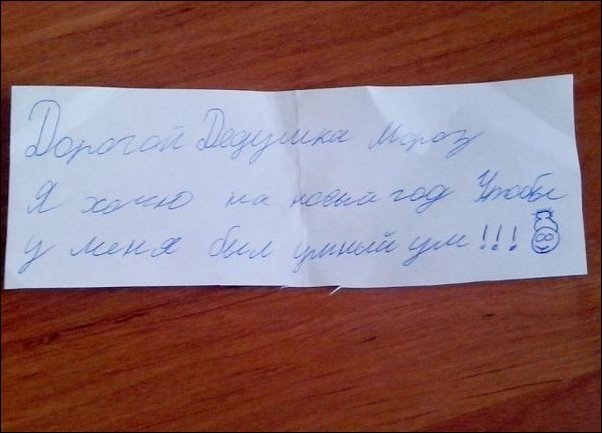 Дорогой Дедушка Мороз
Я хочю на новый год Чтобы
у меня был умный ум!!!